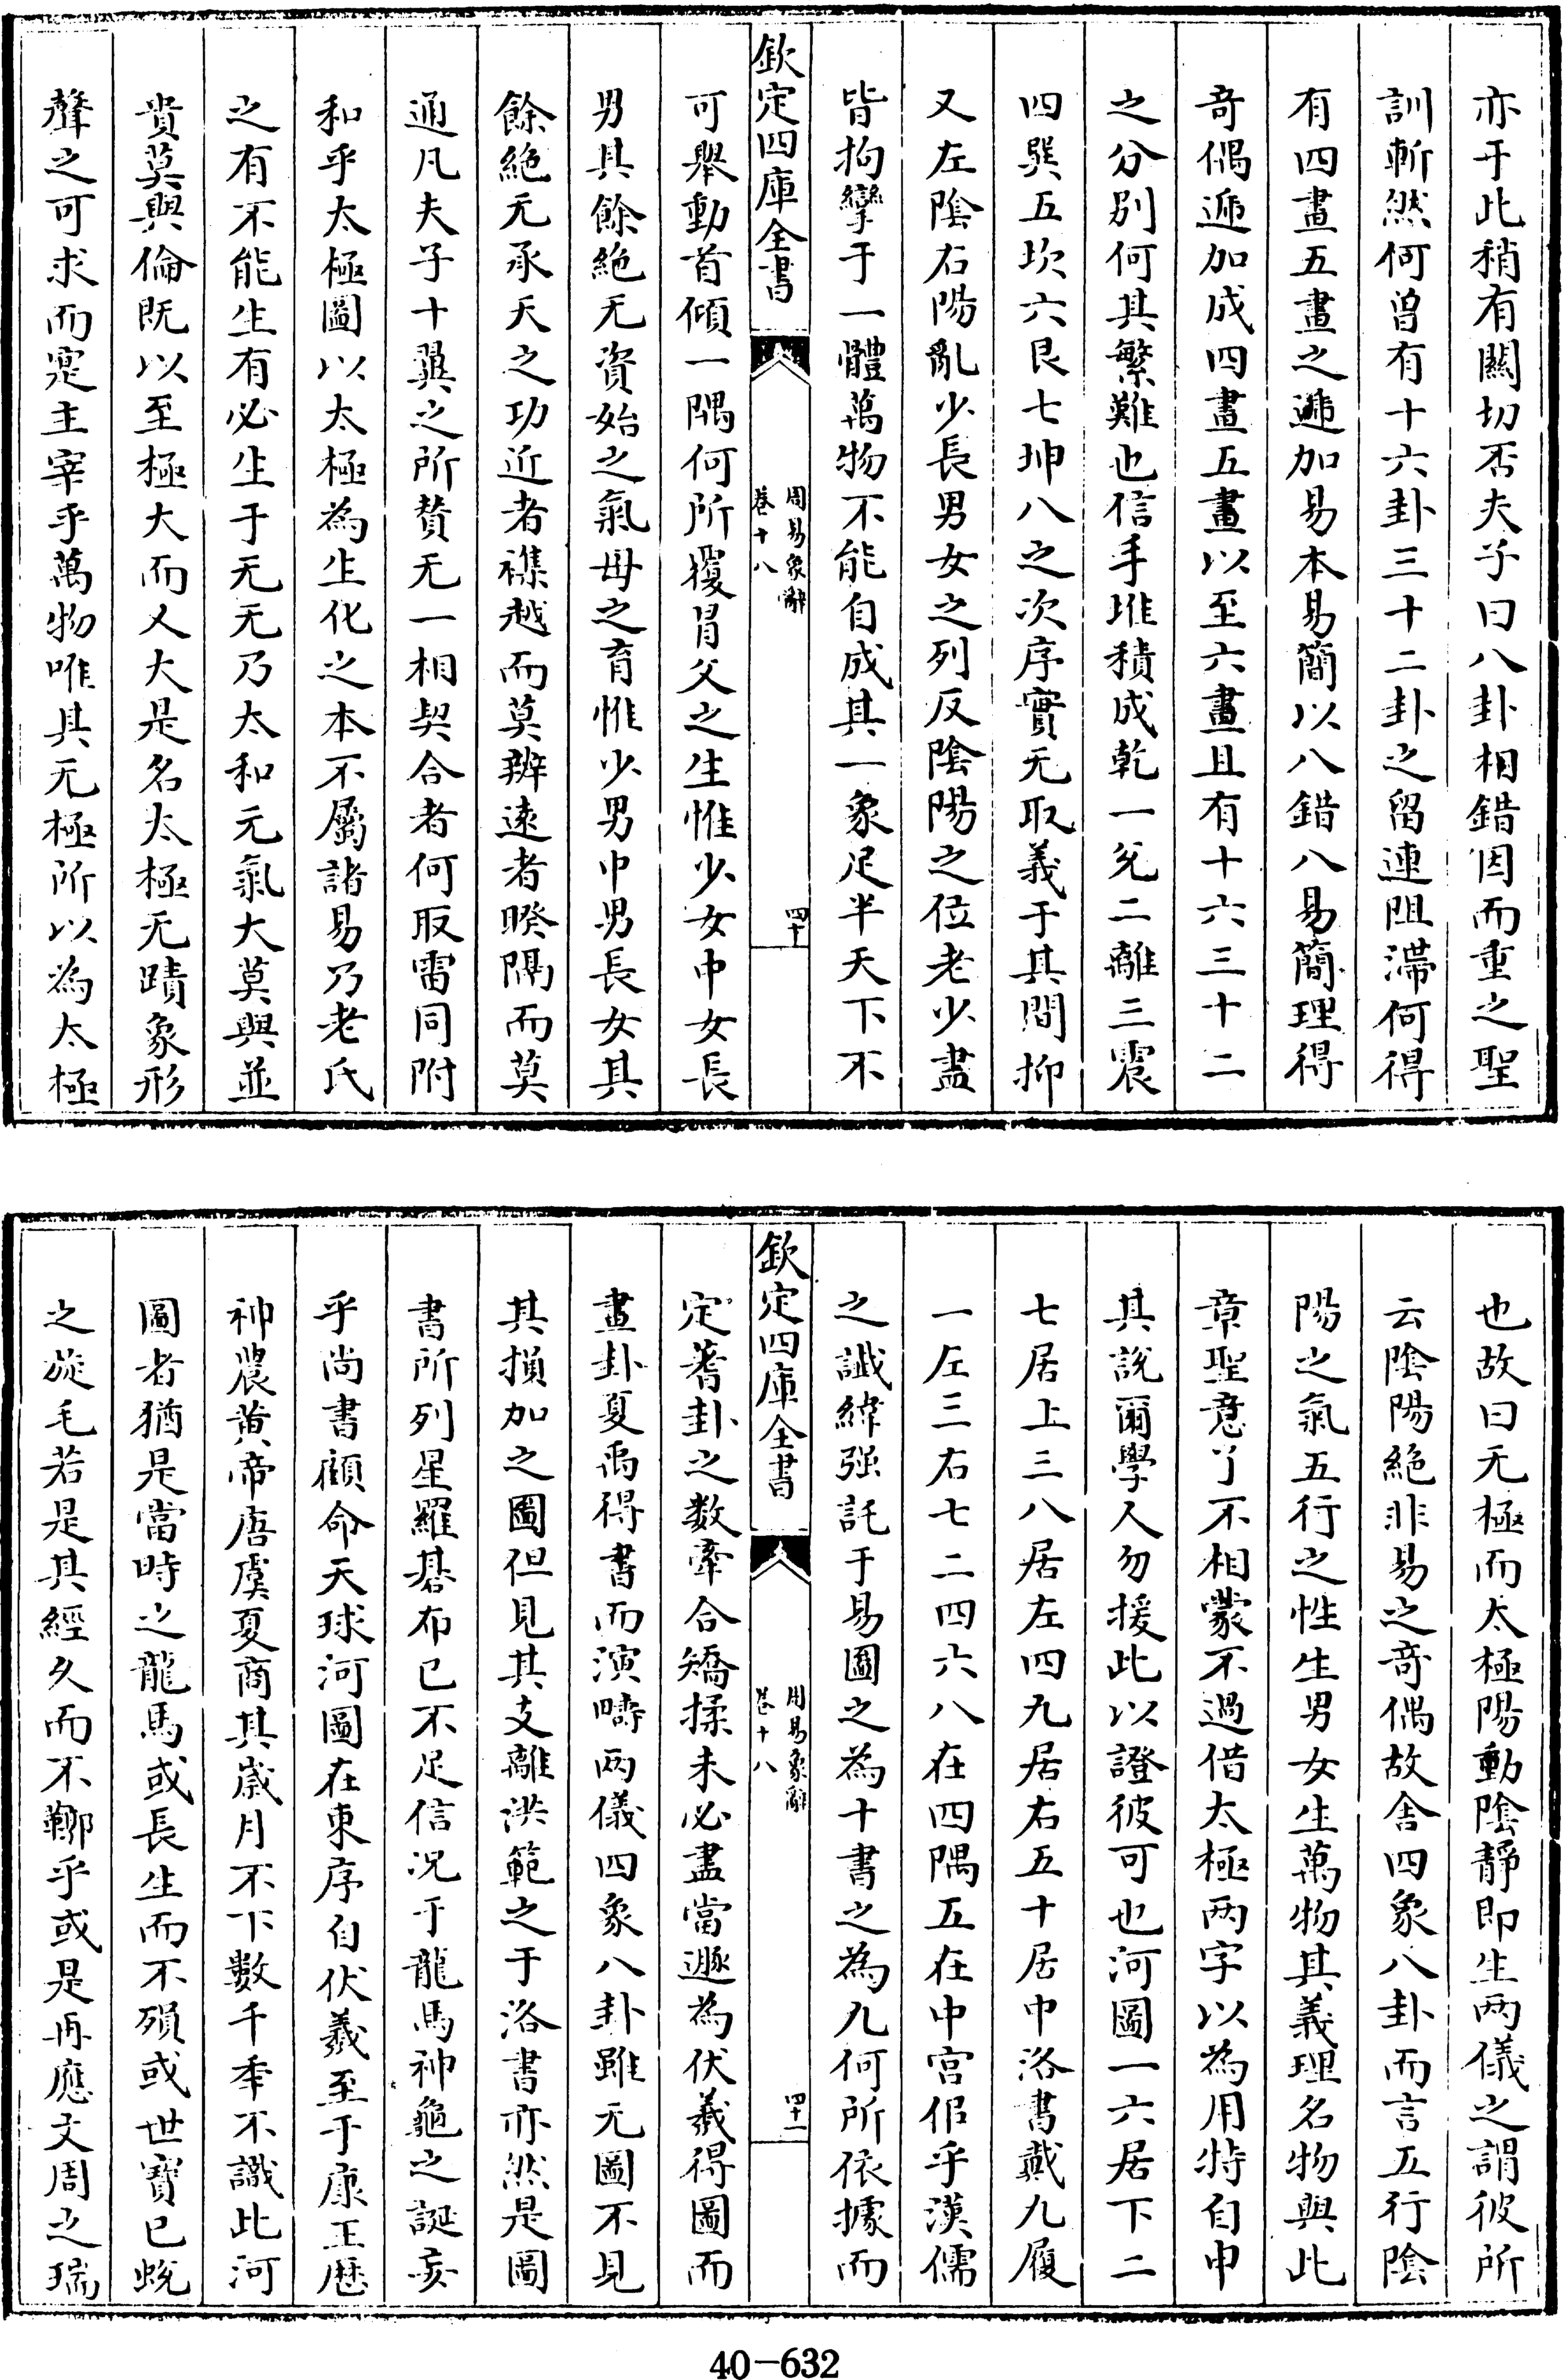 亦于此稍有關切否夫子曰八卦相錯因而重之聖
訓斬然何曽有十六卦三十二卦之留連阻滯何得
有四畫五畫之遞加易本易簡以八錯八易簡理得
奇偶遞加成四畫五畫以至六畫且有十六三十二
之分别何其繁難也信手堆積成乾一兌二離三震
四巽五坎六艮七坤八之次序實无取義于其間抑
又左陰右陽亂少長男女之列反陰陽之位老少盡
皆拘孿于一體萬物不能自成其一象足半天下不
欽定四庫全書
周易象辭
卷十八
四十
可舉動首傾一隅何所覆冐父之生惟少女中女長
男具餘絶无資始之氣母之育惟少男中男長女其
餘絶无承天之功近者襍越而莫辨逺者暌隔而莫
通凡夫子十翼之所賛无一相契合者何取雷同附
和乎太極圖以太極為生化之本不屬諸易乃老氏
之有不能生有必生于无无乃太和元氣大莫與並
貴莫與倫既以至極大而又大是名太極无蹟象形
聲之可求而寔主宰乎萬物唯其无極所以為太極
也故曰无極而太極陽動陰靜即生两儀之謂彼所
云陰陽絶非易之奇偶故舍四象八卦而言五行陰
陽之氣五行之性生男女生萬物其義理名物與此
章聖意了不相蒙不過借太極两字以為用特自申
其說爾學人勿援此以證彼可也河圖一六居下二
七居上三八居左四九居右五十居中洛書戴九履
一左三右七二四六八在四隅五在中宫伹乎漢儒
之讖緯强託于易圖之為十書之為九何所依據而
欽定四庫全書
周易象辭
卷十八
四十一
定蓍卦之数牽合矯揉未必盡當遯為伏羲得圖而
畫卦夏禹得書而演疇两儀四象八卦雖无圖不見
其損加之圖但見其支離洪範之于洛書亦然是圖
書所列星羅碁布已不足信况于龍馬神龜之誕妄
乎尚書顧命天球河圖在東序自伏羲至于康王歴
神農黄帝唐虞夏商其嵗月不下數千年不識此河
圖者猶是當時之龍馬或長生而不殞或世寳已蛻
之旋毛若是其經久而不鞹乎或是再應文周之瑞
40-632